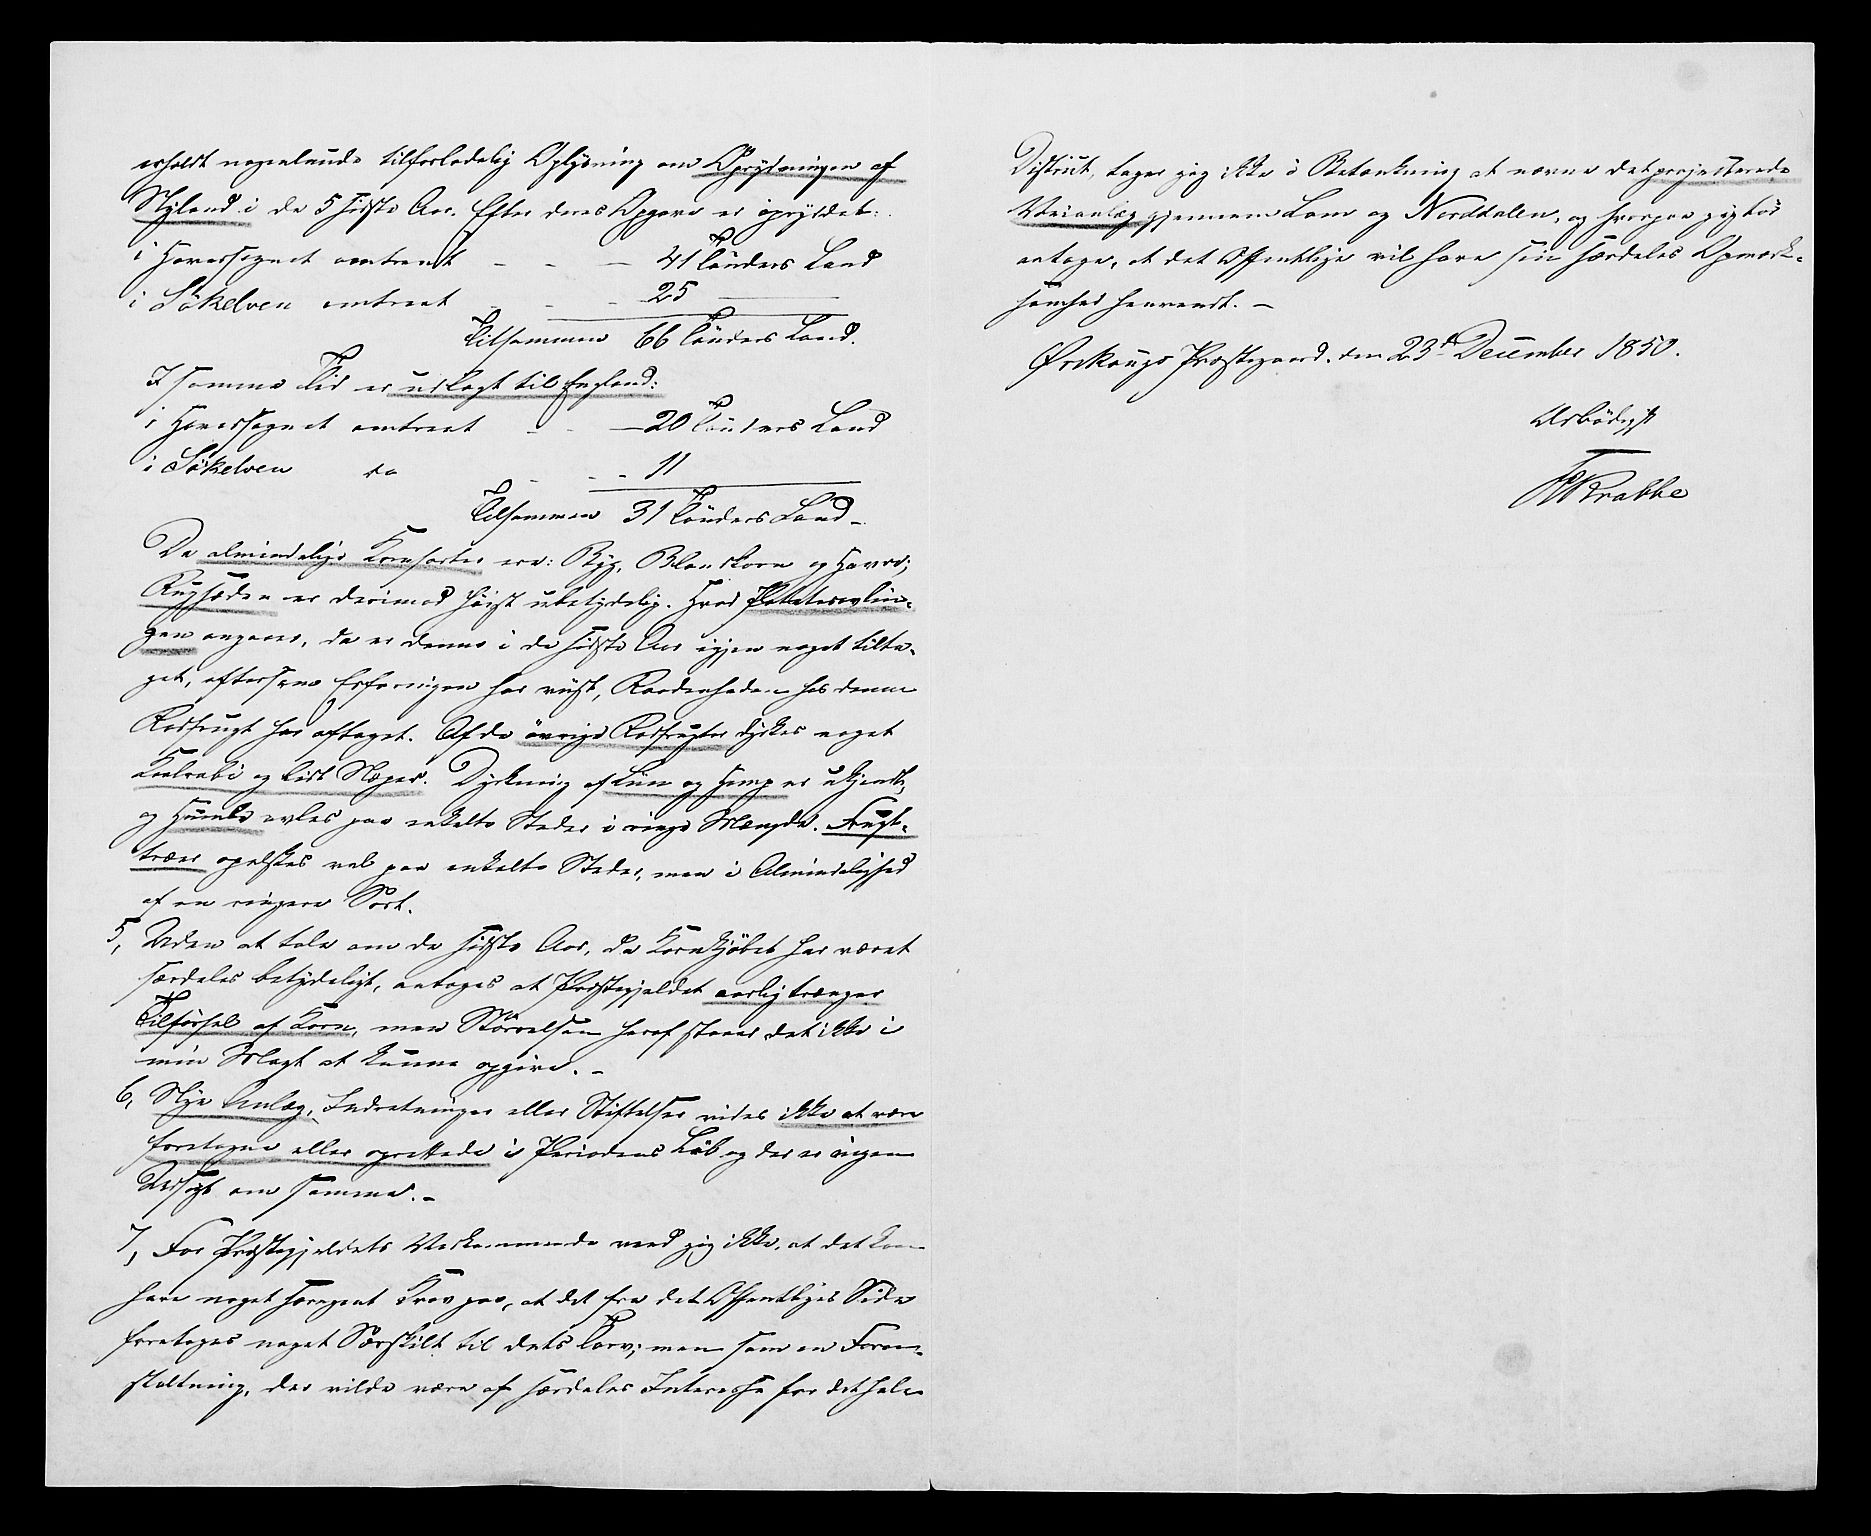 erholdt nogenlunde tilforladelig Oplysning om Oprydningen af
Nyland i de 5 sidste Aar. Efter deres Opgave er opryddet:
i Hovedsognet omtrent - - - 41 Tönders Land
i Sökelven omtrent - - - 25 ———
Tilsammen 66 Tönders Land.
I samme Tid er udlagt til England:
i Hovedsognet omtrent - - - 20 Tönders Land
i Sökelven do - - - 11
Tilsammen 31 Tönders Land.
De almindelige Kornsorter ere: Byg, Blandkorn og Havre;
Rugsæden er derimod høist ubetydelig. Hvad Potetesavlin-
gen angaaer, da er denne i de sidste Aar igjen noget tilta-
get, eftersom Erfaringen har viist, Raaddenheden hos denne
Rodfrugt har aftaget. Af de övrige Rodfrugter dyrkes noget
Kaalrabi og lidt Næper. Dyrkning af Liin og Hamp er ukjendt,
og Humle avles paa enkelte Steder i ringe Mængde. Frugt-
træer opelskes vel paa enkelte Steder, men i Almindelighed
af en ringere Sort.
5, Uden at tale om de sidste Aar, da Kornkjöbet har været
særdeles betydeligt, antages at Præstegjeldet aarlig trænger
Tilførsel af Korn, men Störrelsen heraf staaer det ikke i
min Magt at kunne opgive. -
6, Nye Anlæg, Indretninger eller Stiftelser vides ikke at være
foretagne eller oprettede i Periodens Löb og der er ingen
Udsigt om samme. -
7, For Præstegjeldets Vedkommende veed jeg ikke, at det kan
have noget særegent Krav paa, at det fra det Offentliges Side
foretages noget Særskilt til dets Tarv; men som en Foran-
staltning, der vilde være af særdeles Interesse for det hele
District, tager jeg ikke i Betænkning at nævne det projecterede
Veianlæg gjennem Lom og Norddalen, og hvorpaa jeg tør
antage, at det Offentlige vil have sin særdeles Opmærk-
somhed henvendt. -
Ørskougs Præstegaard, den 23de December 1850.
Ærbødigst
Krabbe